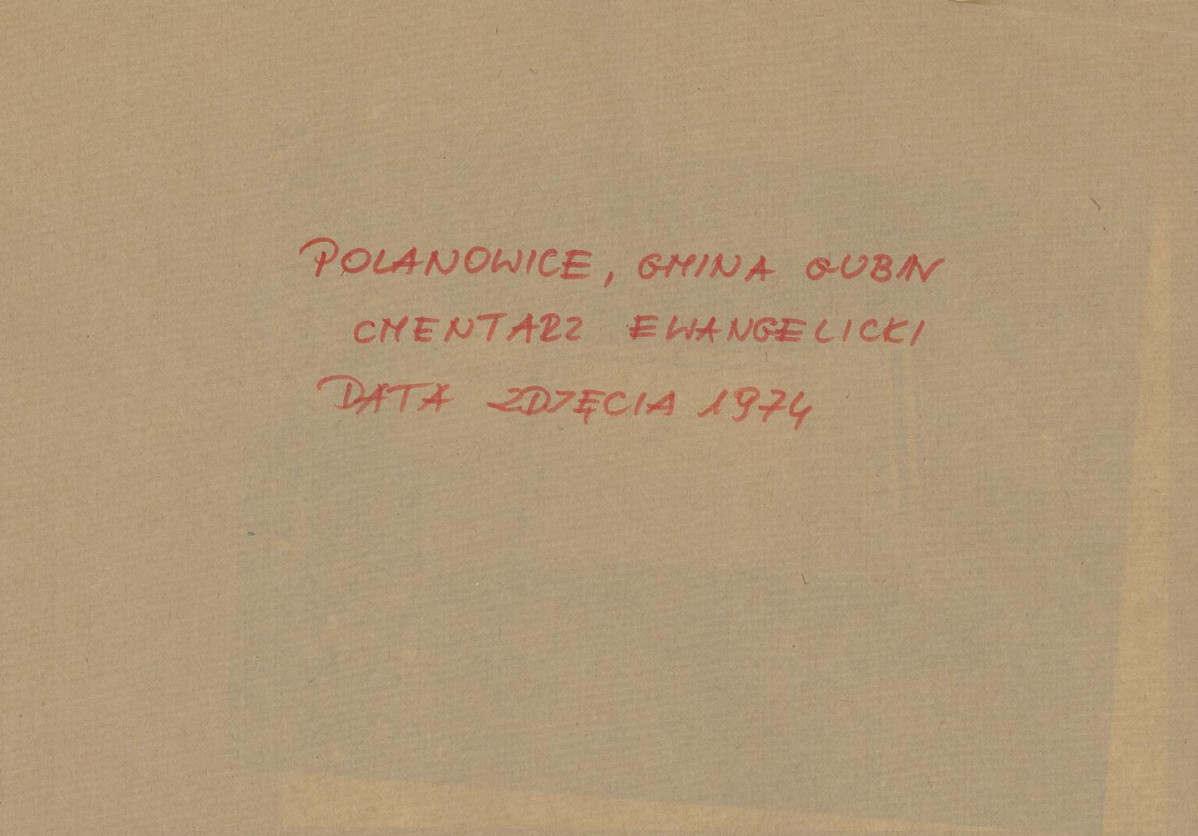 POLANOWICE, GMINA GUBIN
CMENTARZ EWANGELICKI
DATA ZDJĘCIA 1974